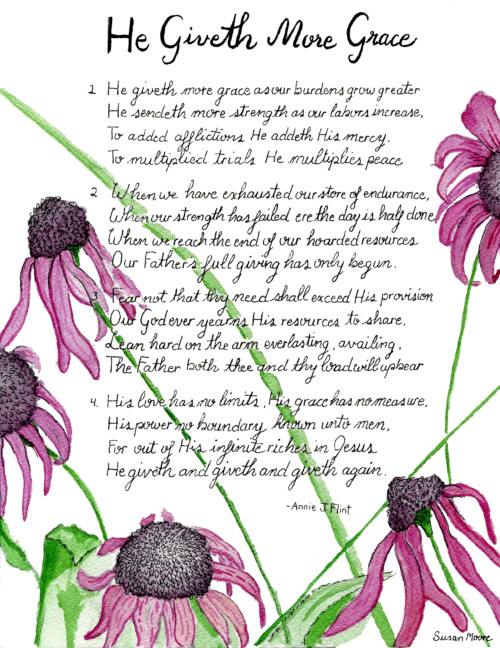 He Giveth More Grace
1. He giveth more grace as our burdens grow greater
He sendeth more strength as our labors increase,
To added afflictions He addeth His mercy,
To multiplied trials He multiplies peace
2. When we have exhausted our store of endurance,
When our strength has failed ere the day is half done,
When we reach the end of our hoarded resources
Our Father's full giving has only begun.
3. Fear not that thy need shall exceed His provision
Our God ever yearns His resources to share,
Lean hard on the arm everlasting, availing,
The Father both thee and thy load will upbear
4. His love has no limits, His grace has no measure,
His power no boundary known unto men,
For out of His infinite riches in Jesus
He giveth and giveth and giveth again.
-Annie J Flint
Susan Moore